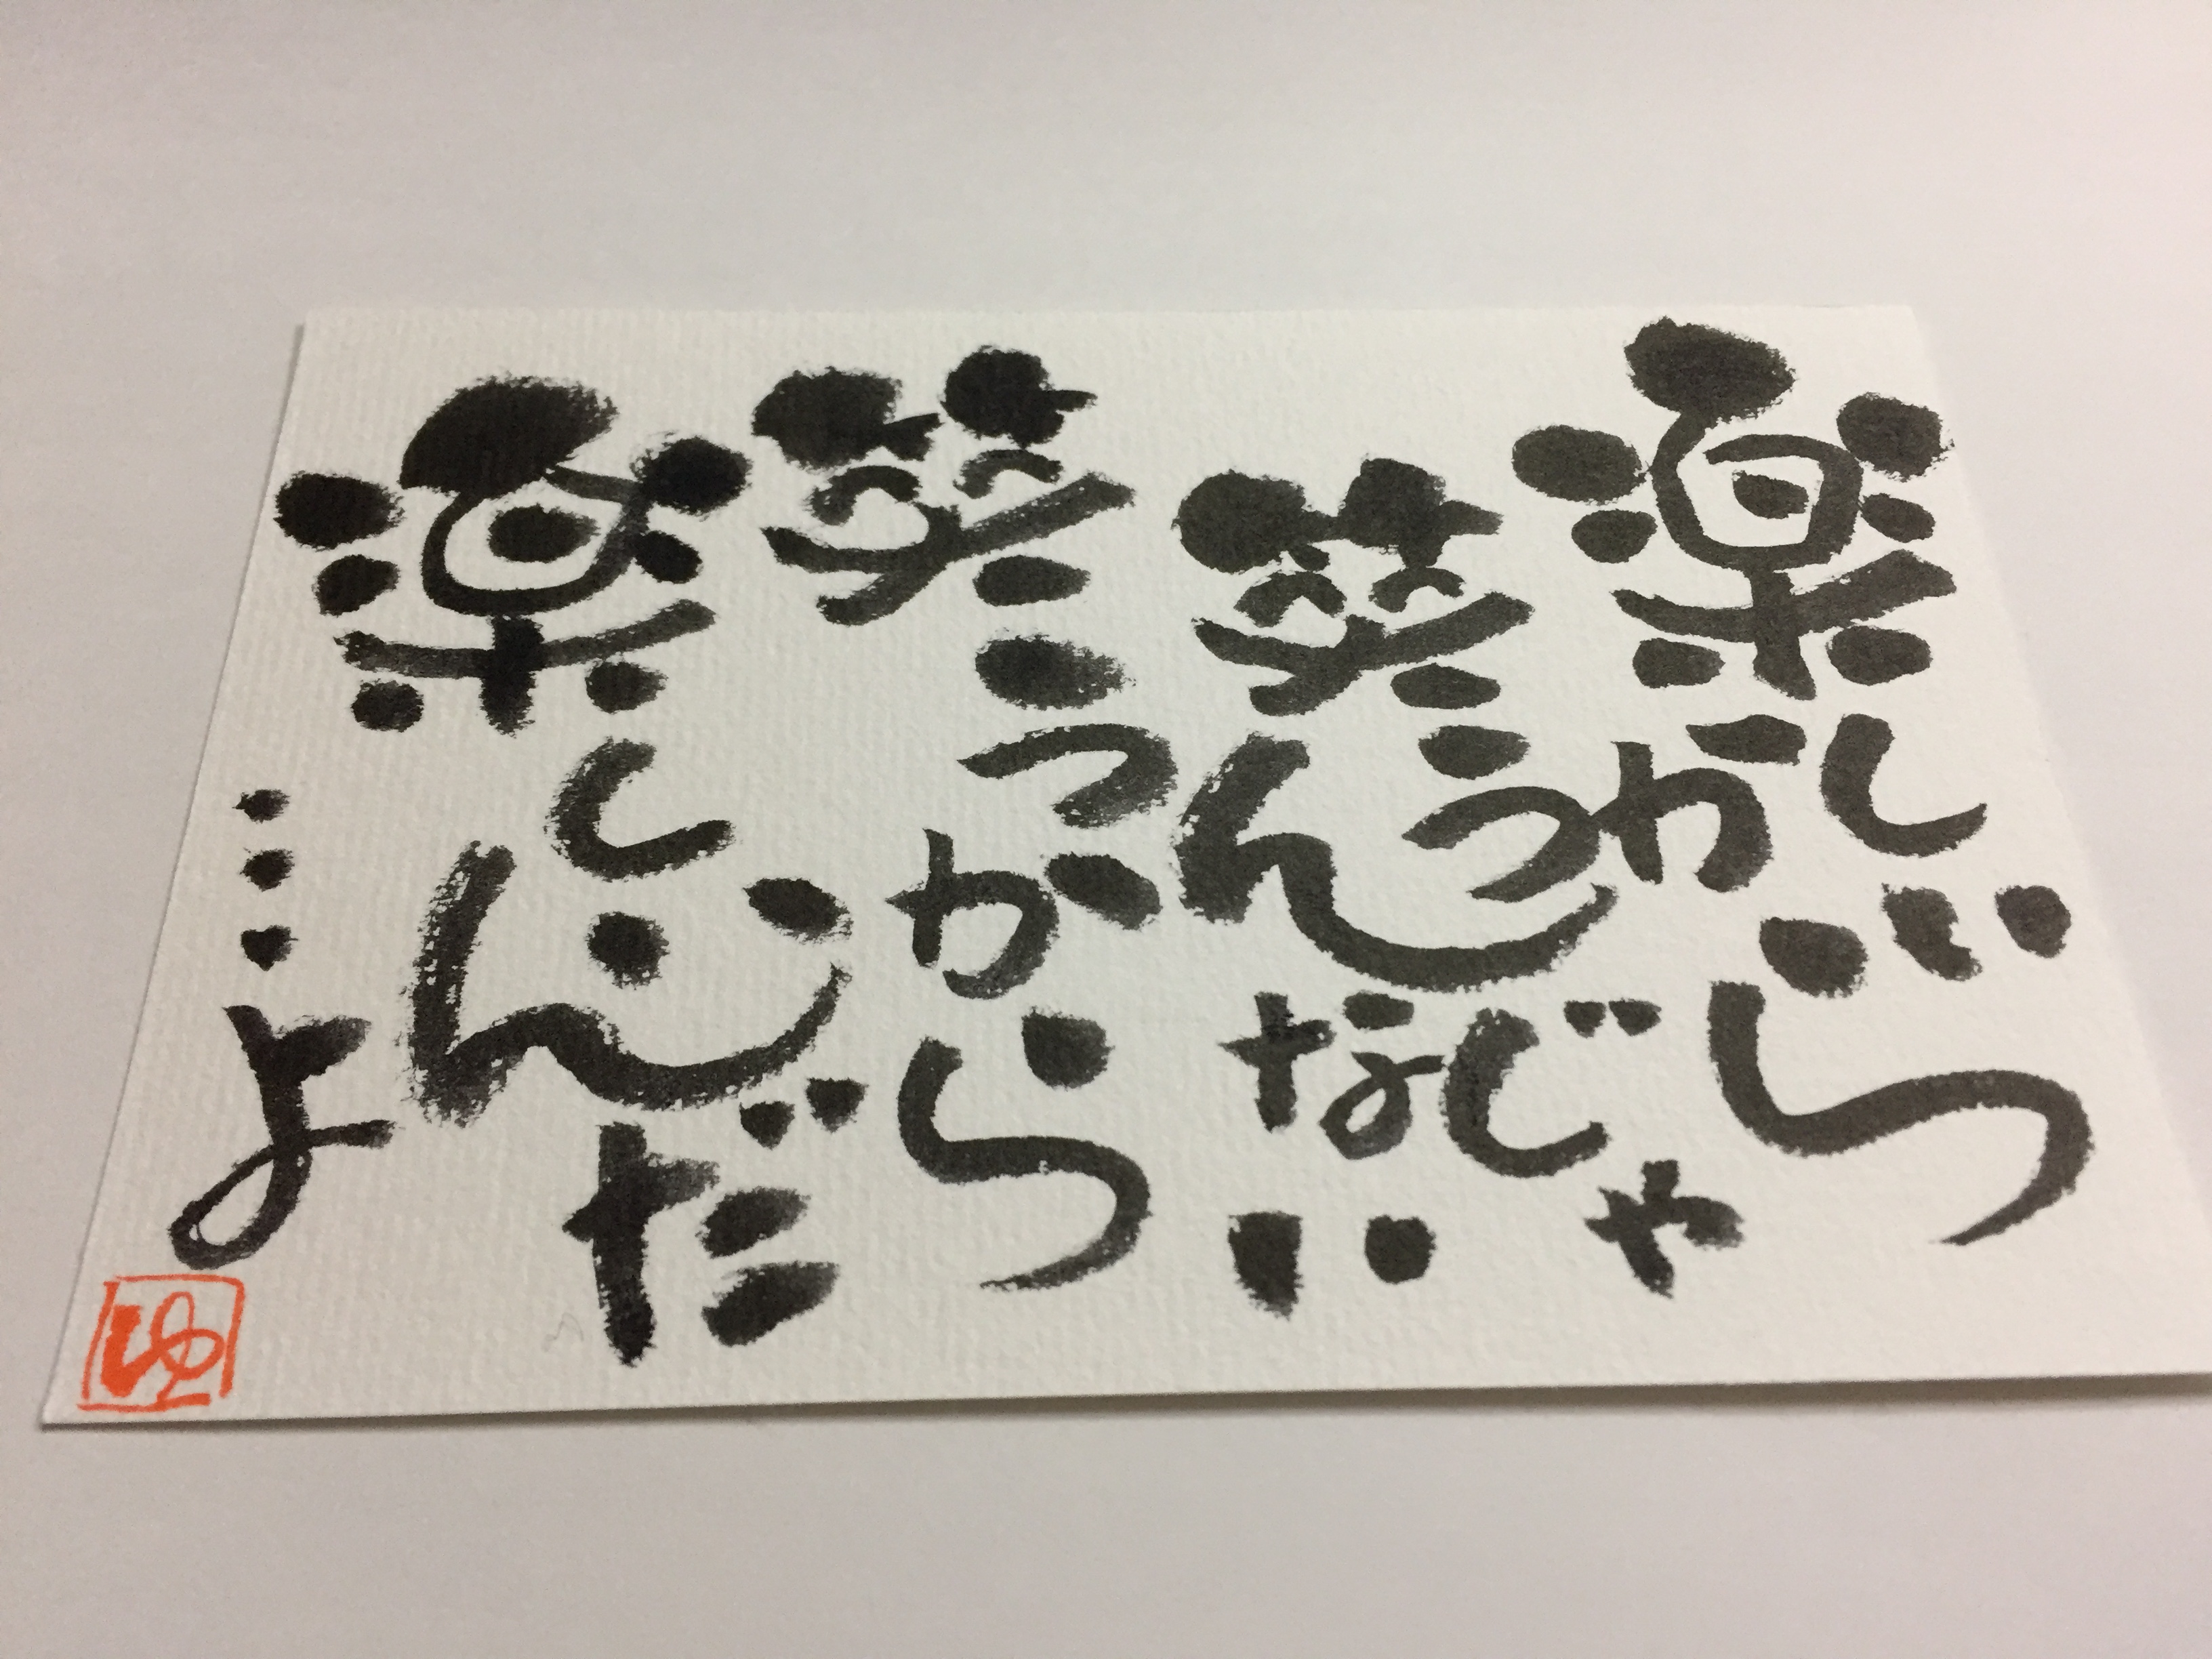 楽しいから
笑うんじゃない
笑うから
楽しいんだ
…よ
ゆ